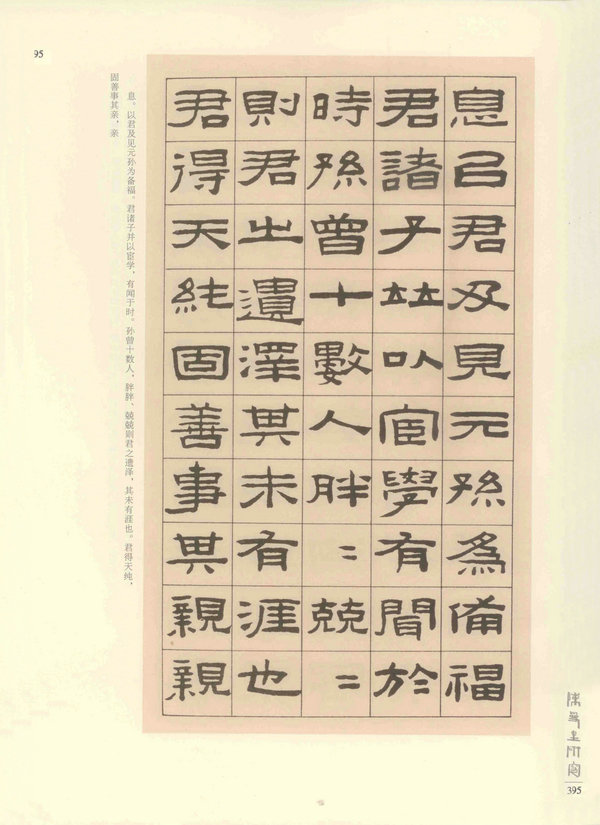 95
息㠯君及見元孫爲備福
君諸子竝以宦學有聞於
時孫曾十數人胖〻兢〻
則君之遺澤其未有涯也
君得天純固善事其親親
息。以君及见元孙为备福。君诸子并以宦学,有闻于时。孙曾十数人,胖胖、兢兢则君之遗泽,其未有涯也。君得天纯,
固善事其亲,亲
395